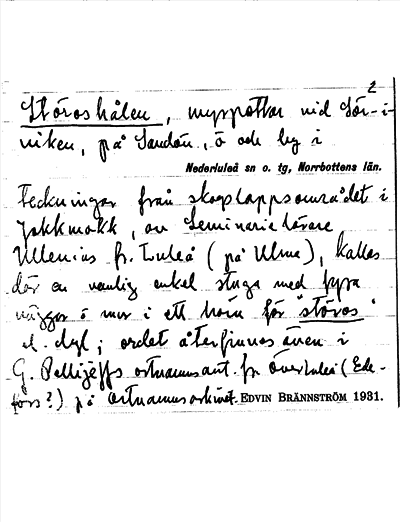 2
Störoshålen, myrpottor vid Sör-i-
viken, på Sandön, ö och by i
Nederluleå sn o. tg, Norrbottens län.
Teckningar från skogslappsområdet i
Jokkmokk, av Seminarielärare
Ullenius fr. Luleå (på Ulma), kallas
där en vanlig enkel stuga med fyra
väggar o mur i ett hörn för "störos"
el. dyl; ordet återfinnes även i
G. Pellijeffs ortnamnsant. fr. Överluleå (Ede-
fors?) på Ortnamnsarkivet. EDVIN BRÄNNSTRÖM 1931.